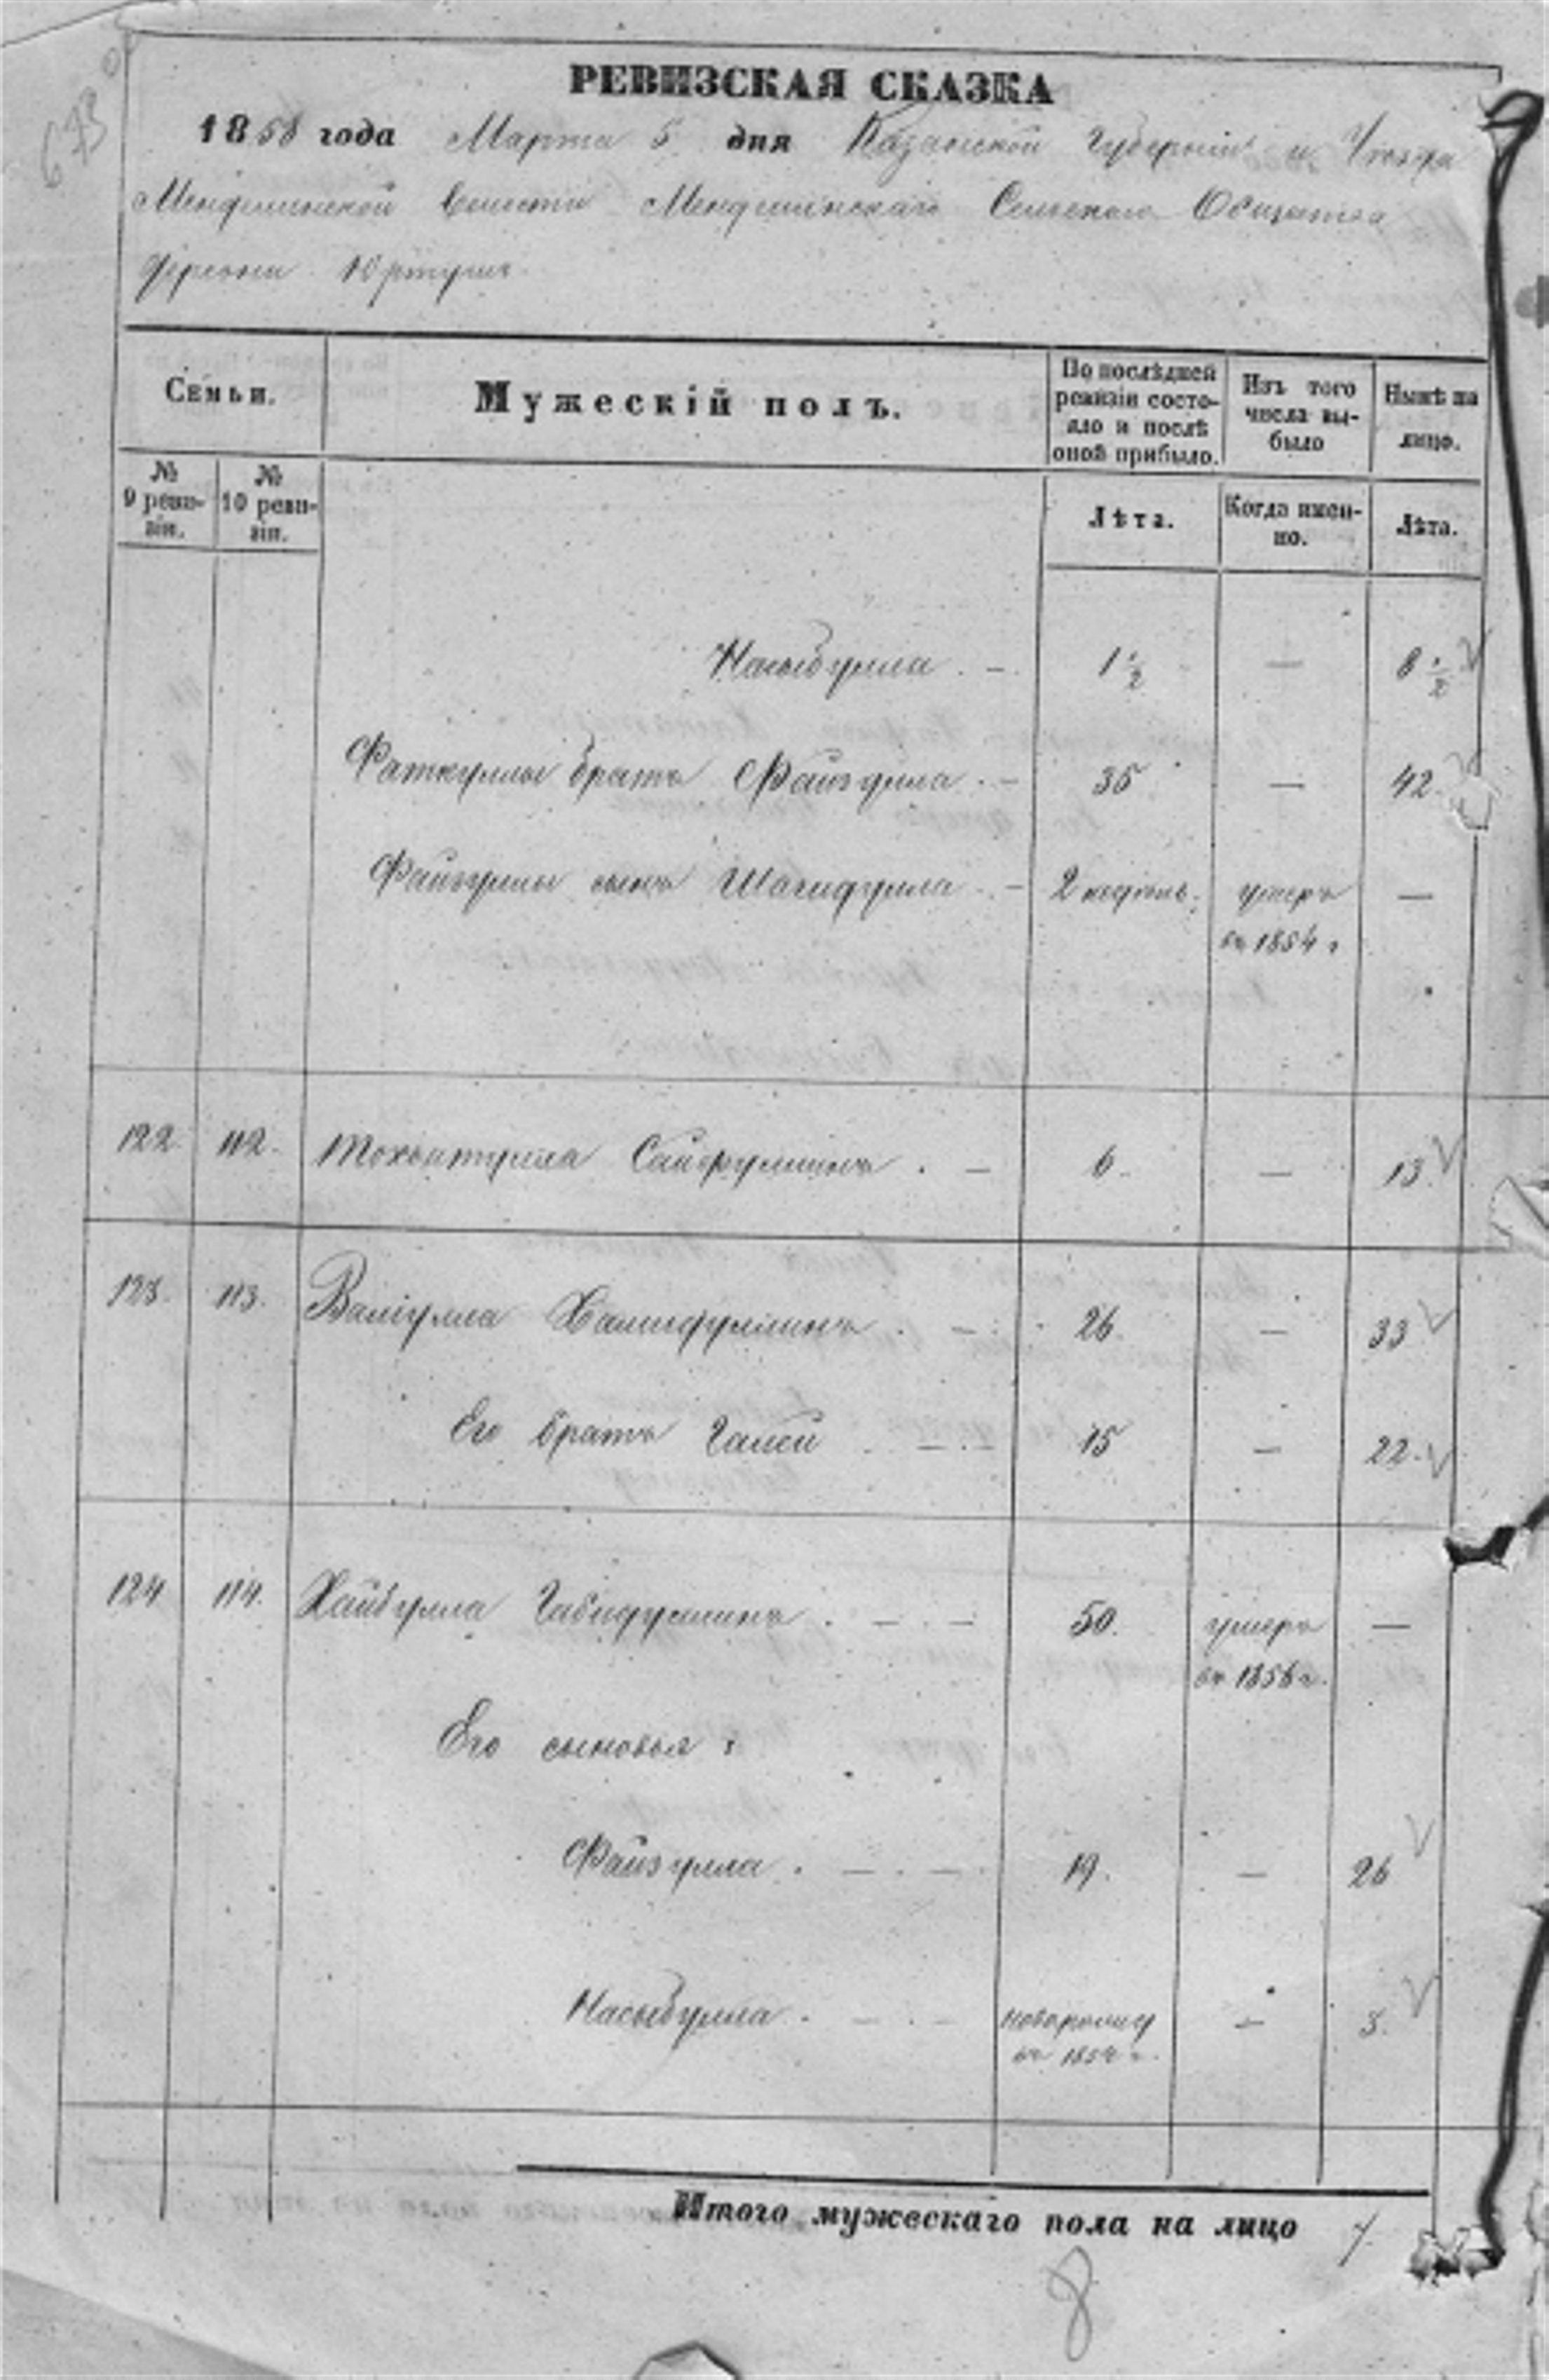 673
РЕВИЗСКАЯ СКАЗКА
1858 года Марта 5 дня Казанской Губернии и Уезда
Менделинской Волости Менделинскаго Сельскаго Общества
деревни Юртуши
Семьи.
Мужескій полъ.
По послѣдней ревизіи состояло и послѣ оной прибыло.
Изъ того числа выбыло
Нынѣ на лицо.
№ 9 ревизіи.
№ 10 ревизіи.
Лѣта.
Когда именно.
Лѣта.
Насыбулла . — 1 1/2 — 8 1/2
Фаткуллы братъ Файзулла . — 35 — 42.
Файзуллы сынъ Шагидулла . — 2 недѣль. умеръ —
въ 1854 г
122. 112. Сайфуллинъ . — 6. — 13.
123. 113. Валіулла Халидуллинъ . — 26. — 33
Его братъ Галей . — . — 15 — 22.
124 114. Хайбулла Габидуллинъ . — . — 50. умеръ —
въ 1856 г.
Его сыновья:
Файзулла . — . — . 19. — 26
Насыбулла . — . — — 3.
въ 1854 г.
Итого мужескаго пола на лицо 7.
8